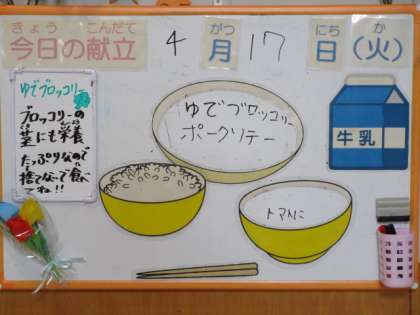 きょう こんだて
今日の献立
4月17日(火)
がつ にち か
ゆでブロッコリー
ブロッコリーの
茎にも栄養
たっぷりなので
捨てないで食べ
てね!!
ゆでブロッコリー
ポークソテー
牛乳